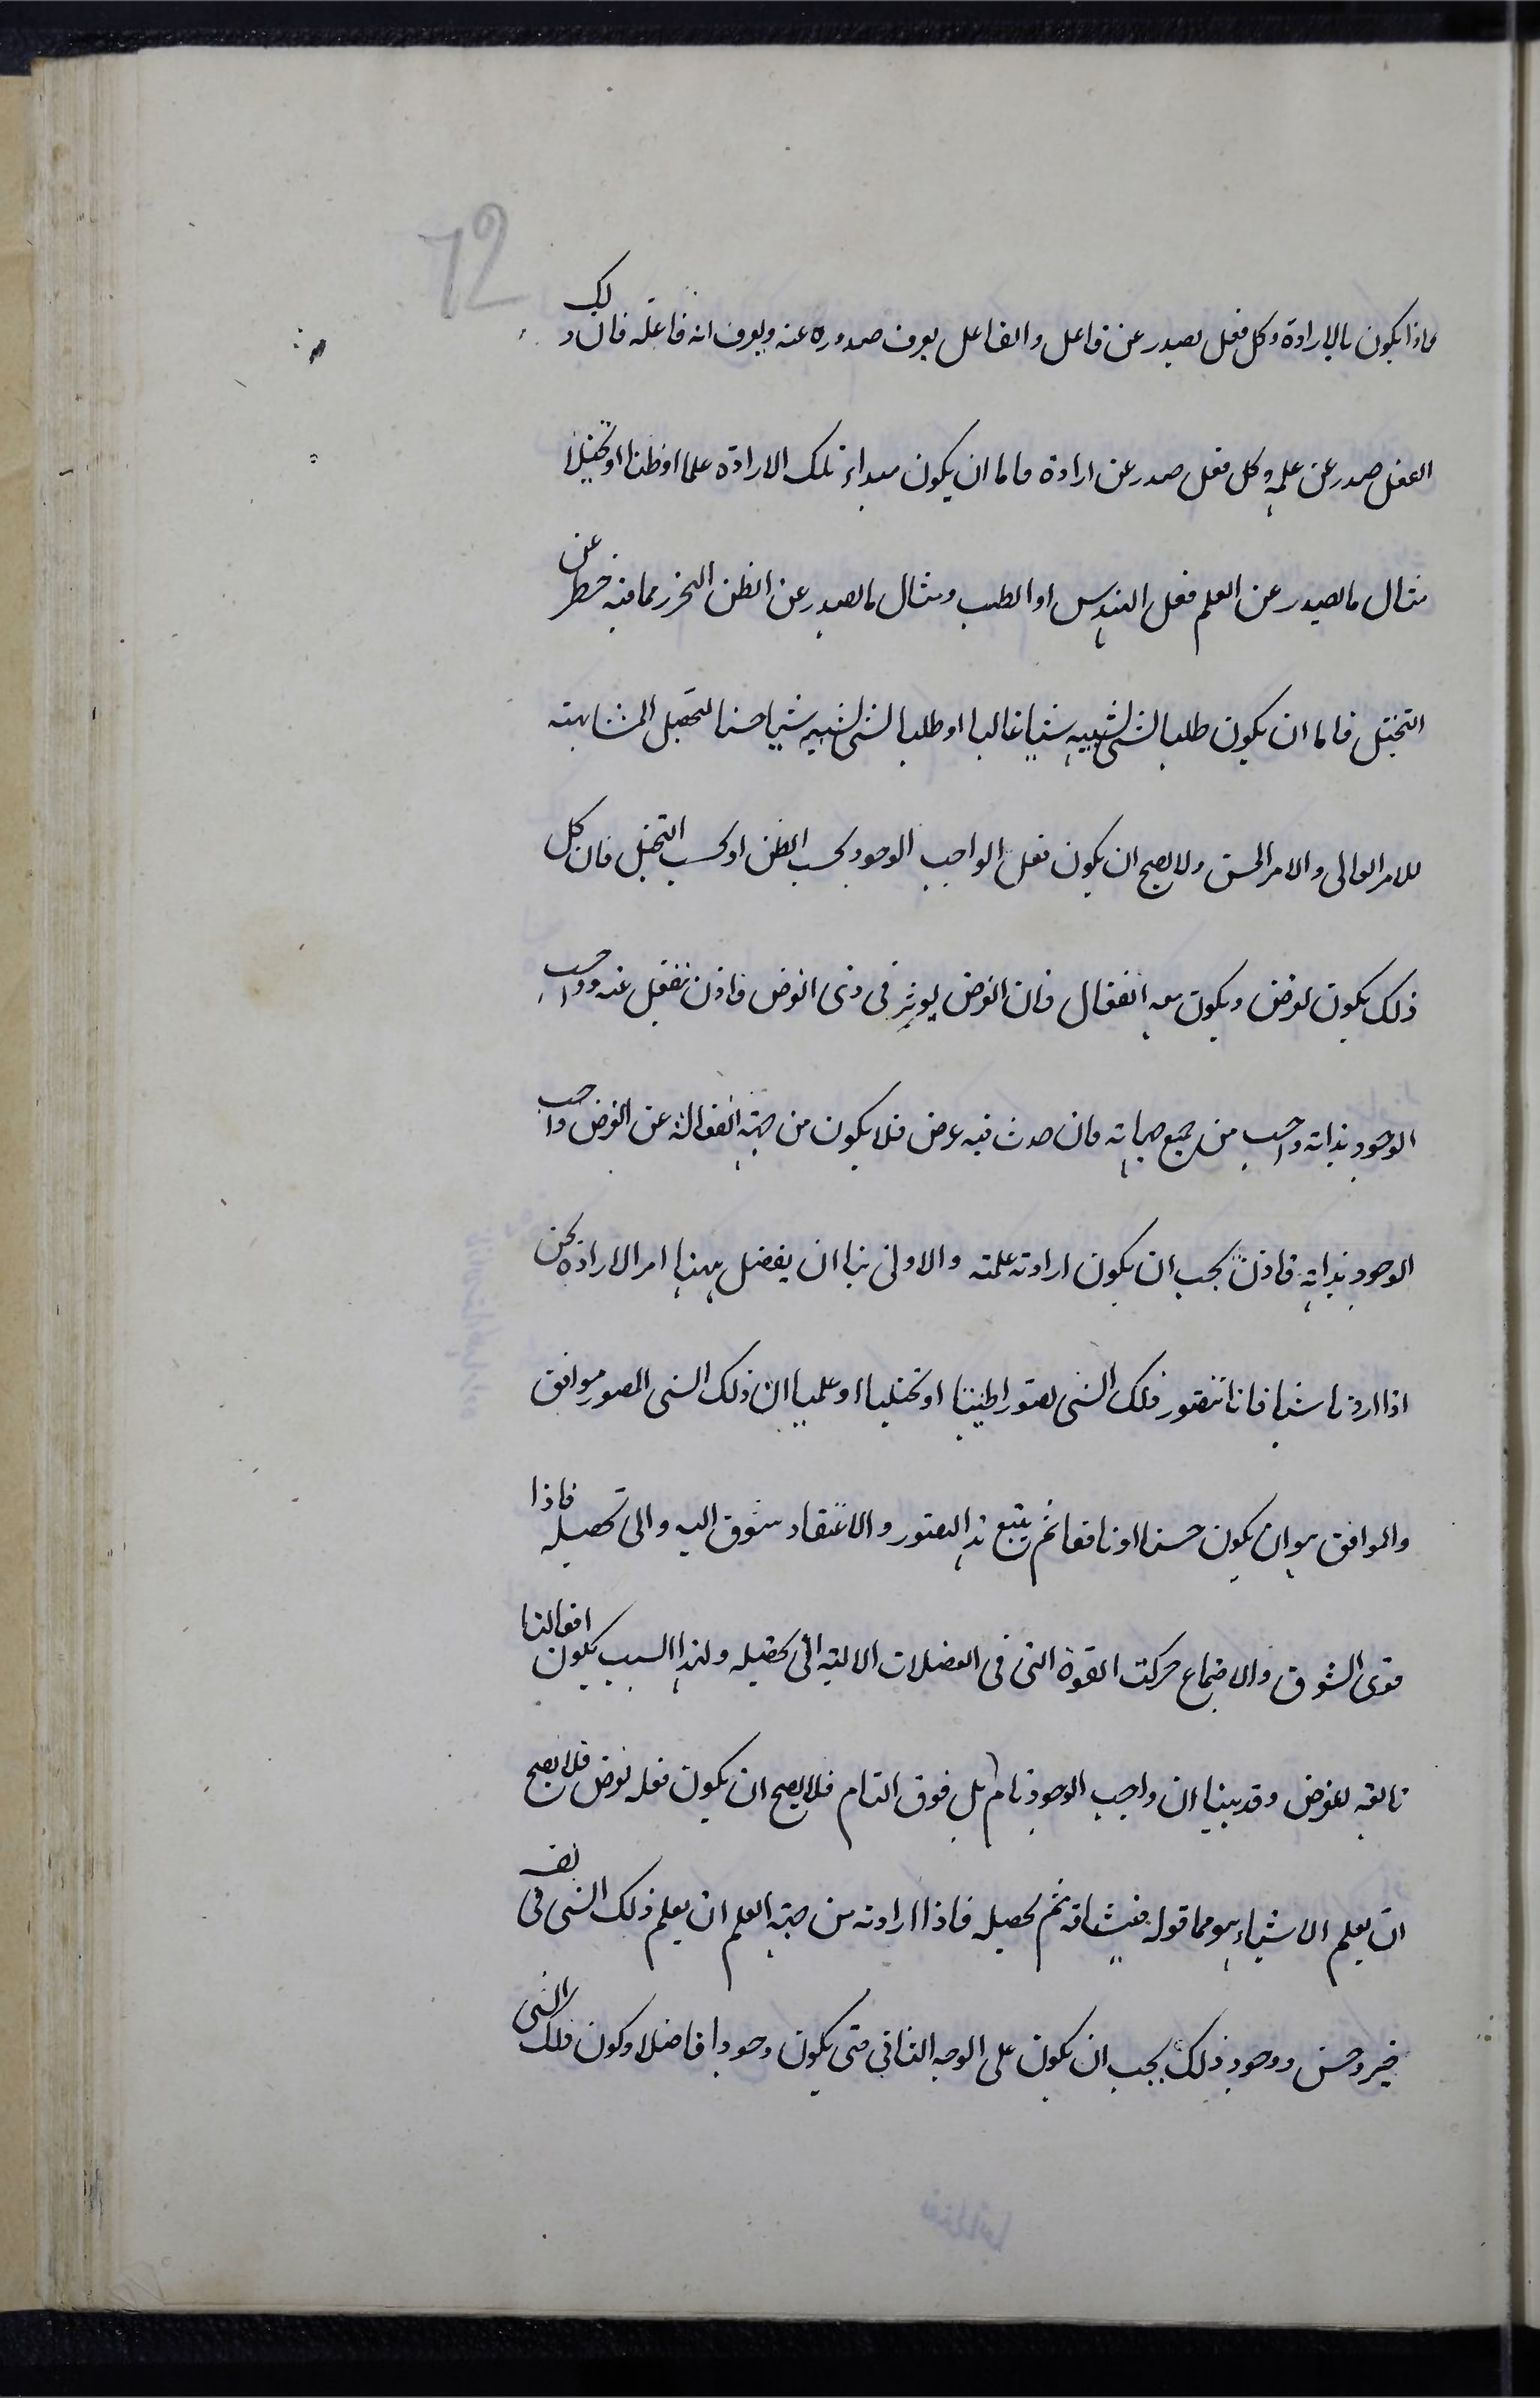 72
فاذا يكون بالارادة وكل فعل يصدر عن فاعل والفاعل يعرف صدوره عنه ويعرف انه فاعله فان ذلك
الفعل صدر عن علمه وكل فعل صدر عن ارادة فاما ان يكون مبداء تلك الارادة علما او ظنا او تخيلا
مثال ما يصدر عن العلم فعل المهندس او الطبيب ومثال ما يصدر عن الظن التحرز مما فيه خطر عن
التخيل فاما ان يكون طلبا لشئ لشبيه شيئا غالبا او طلبا لشئ لشبيه شيئا حسنا لتحصيل المشابهته
للامر العالى والامر الحسن ولا يصح ان يكون فعل الواجب الوجود بحسب الظن او بحسب التخيل فان كل
ذلك يكون لغرض ويكون معه انفعال فان الغرض يوثر فى ذى الغرض فاذن ينفعل عنه وواجب
الوجود بذاته واجب من جميع جهاته فان حدث فيه غرض فلا يكون من جهة انفعاله عن الغرض واجب
الوجود بذاته فاذن يجب ان يكون ارادته علمته والاولى بنا ان يفصل بهذا امر الارادة نحن
اذا اردنا شيئا فانا نتصور ذلك الشئ تصورا ظنيا او تخيليا او علميا ان ذلك الشئ المصور موافق
والموافق هو ان يكون حسنا او نافعا ثم يتبع هذا التصور والاعتقاد شوق اليه والى تحصيله فاذا
قوى الشوق والاجماع حركت القوة التى فى العضلات الالية الى تحصيله ولهذا السبب يكون افعالنا
تابعة لغرض وقد بينا ان واجب الوجود تام بل فوق التام فلا يصح ان يكون فعله لغرض فلا يصح
ان يعلم الاشياء هو مما قوله فيشتاقه ثم يحصيله فاذا ارادته من جهة العلم ان يعلم ذلك الشئ فى نفسه
خير وحسن ووجود ذلك يجب ان يكون على الوجه الفانى حتى يكون وجودا فاضلا وكون ذلك الشئ